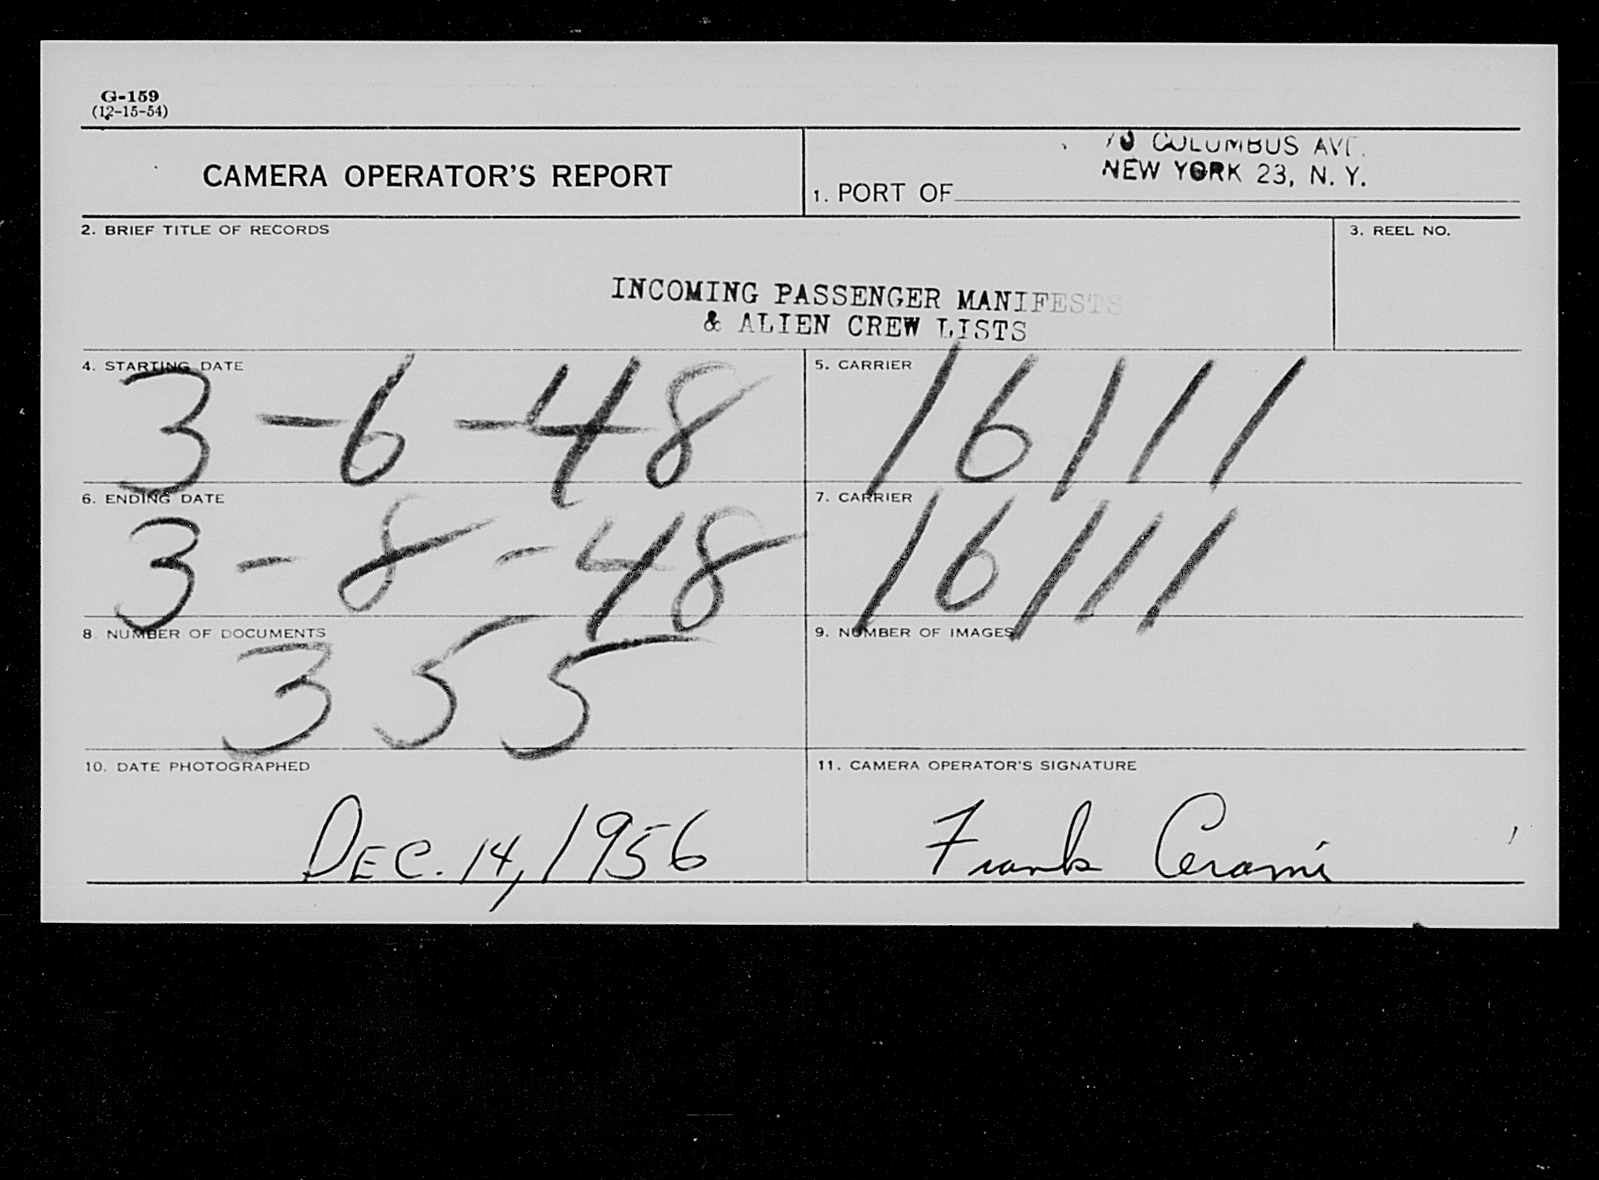 G-159
(12-15-54)
CAMERA OPERATOR'S REPORT
70 COLUMBUS AVE.
NEW YORK 23, N. Y.
1. PORT OF
2. BRIEF TITLE OF RECORDS
3. REEL NO.
INCOMING PASSENGER MANIFESTS
& ALIEN CREW LISTS
4. STARTING DATE
3-6-48
5. CARRIER
16111
6. ENDING DATE
3-8-48
7. CARRIER
16111
8. NUMBER OF DOCUMENTS
355
9. NUMBER OF IMAGES
10. DATE PHOTOGRAPHED
DEC. 14, 1956
11. CAMERA OPERATOR'S SIGNATURE
Frank Cerami